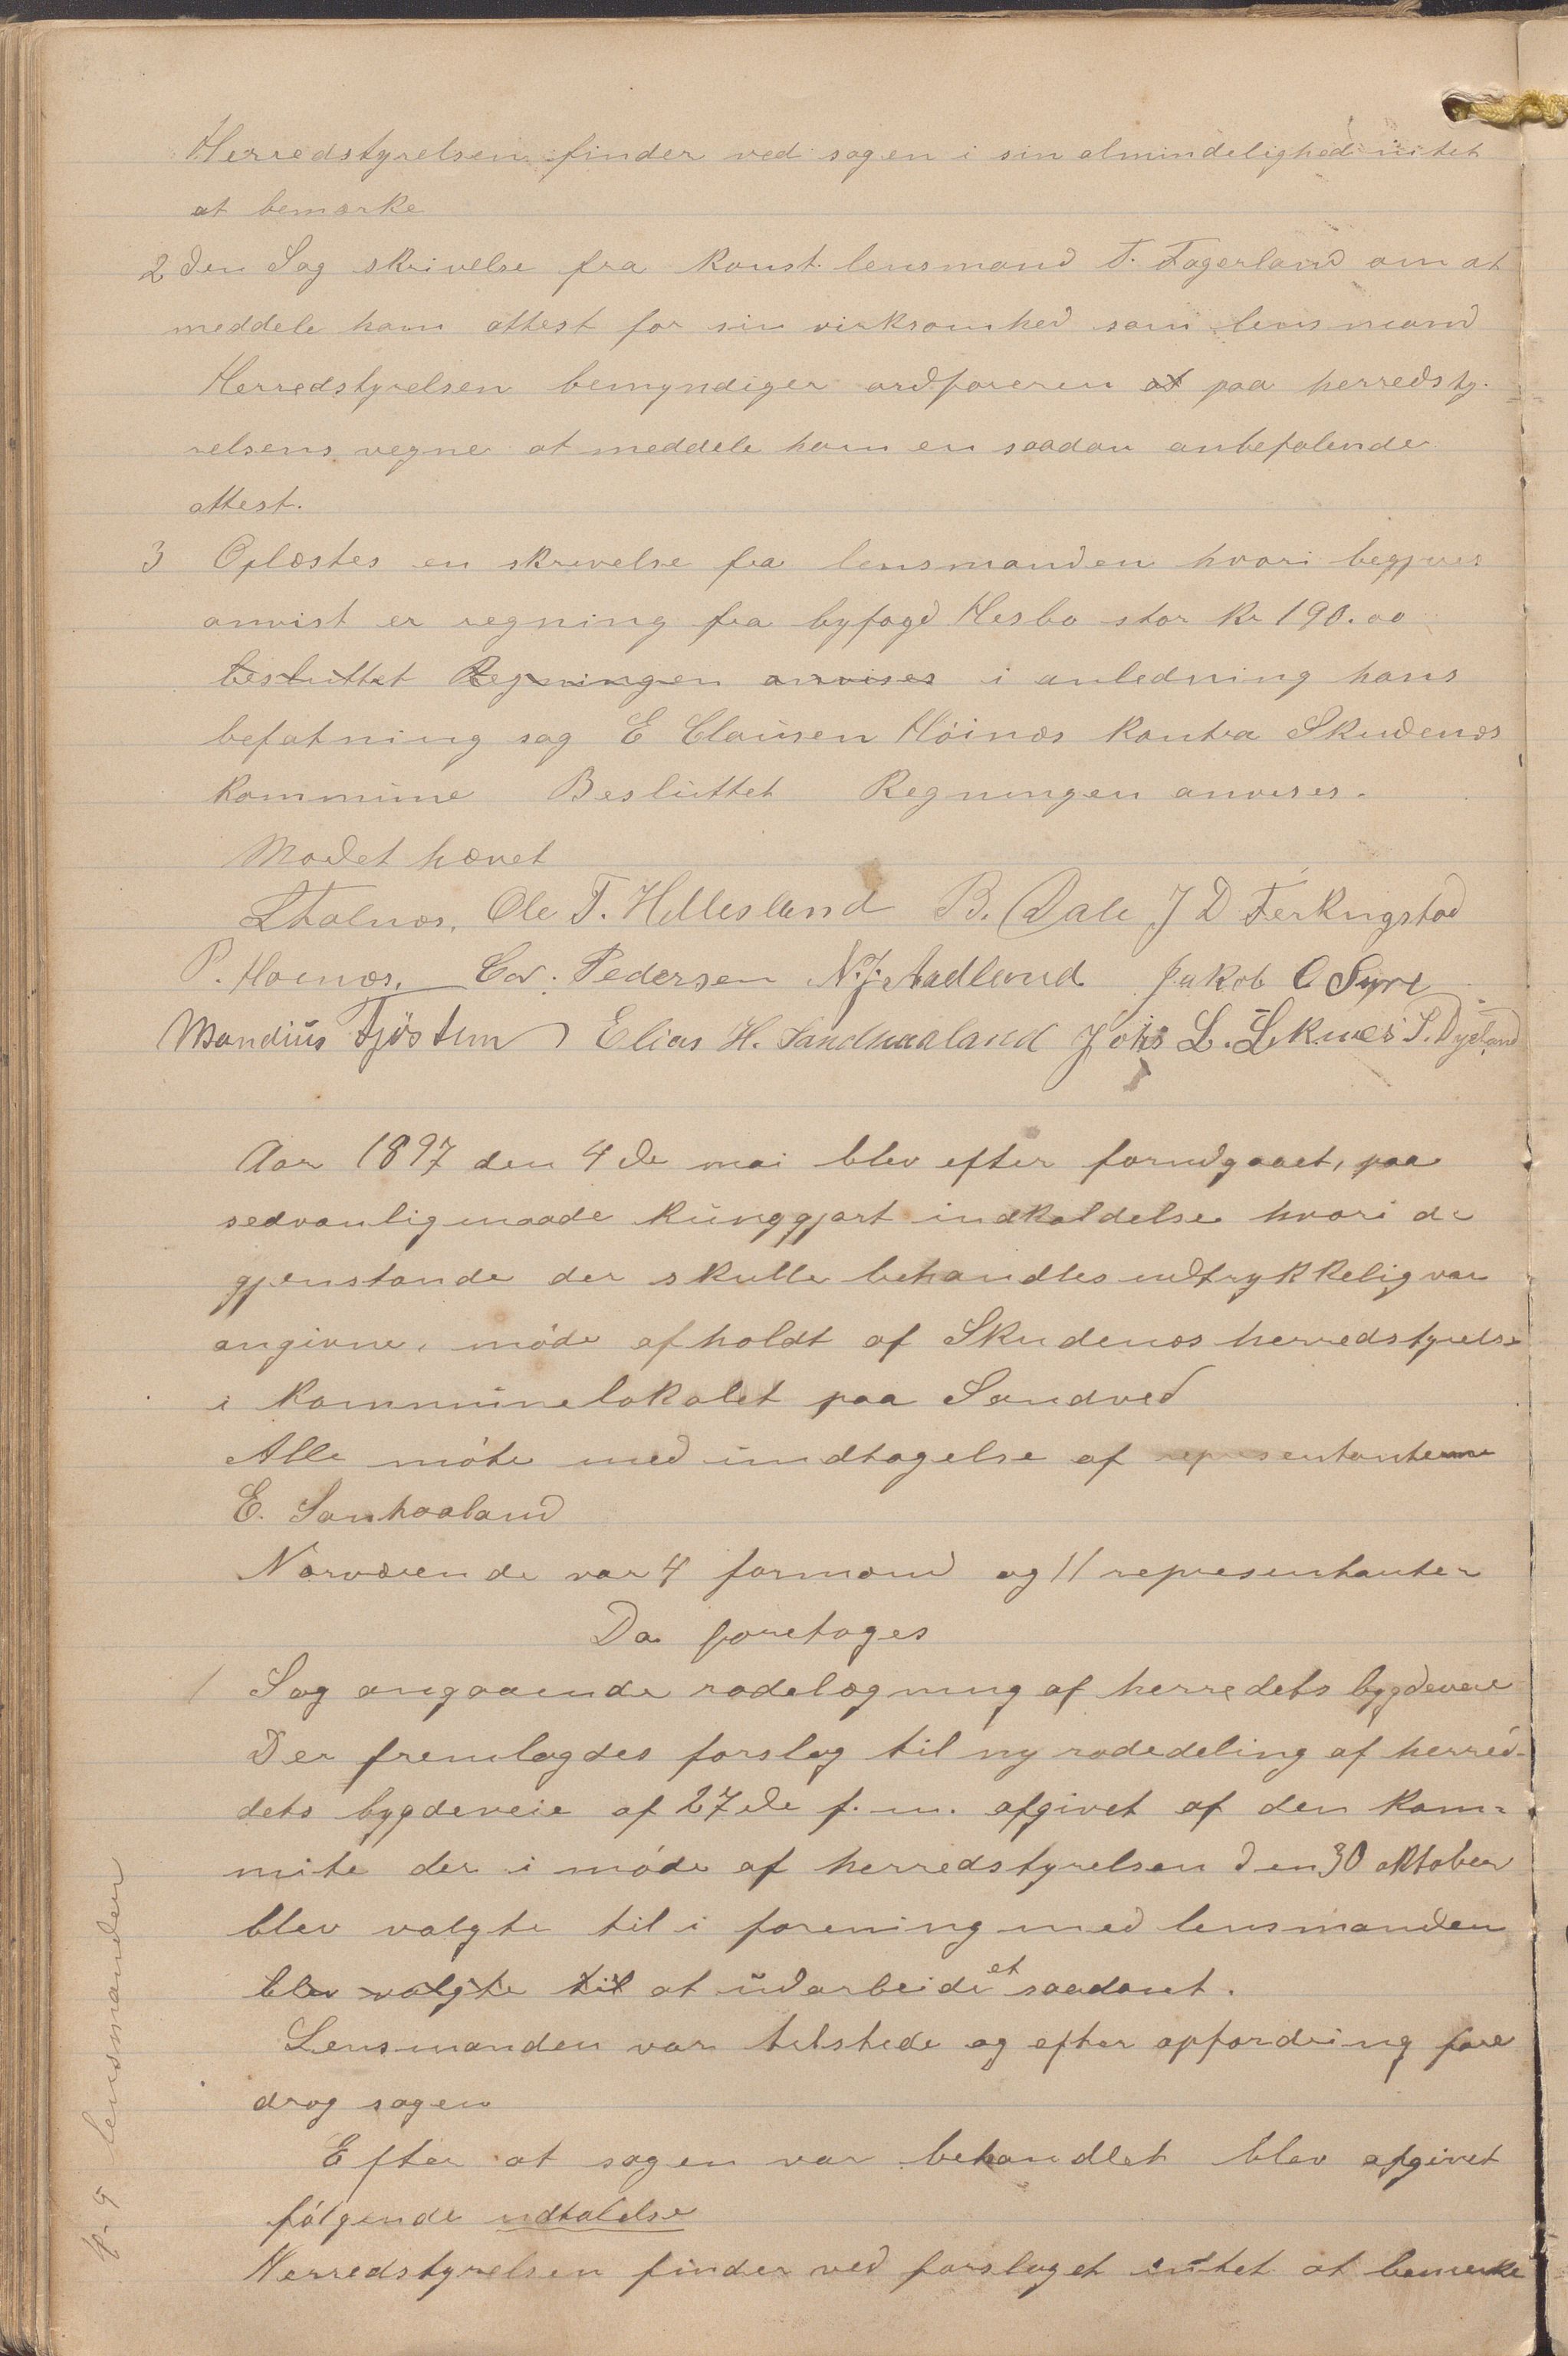 Herredstyrelsen finder ved sagen i sin almindelighed intet
at bemærke
2 den Sag skrivelse fra konst. lensmand T. Fagerland om at
meddele ham attest for sin virksomhed som lensmand
Herredstyrelsen bemyndiger ordføreren at paa herredsty-
relsens vegne at meddele ham en saadan anbefalende
attest.
3 Oplæstes en skrivelse fra lensmanden hvori begjæres
anvist en regning fra byfogd Hesbo stor kr 190.00
besluttet Regningen anvises i anledning hans
befatning sag E Clausen Høinæs kontra Skudenæs
kommune Besluttet Regningen anvises.
Mødet hævet
Ole T. Hillesland B. Dale J D Ferkingstad
P. Høinæs, Ed. Pedersen N. J. Aadland Jakob O Syre
Mandius Tjøstem Elias H. Sandhaaland Johs L. Liknes S. Dyeland
Aar 1897 den 4de mai blev efter forudgaaet, paa
sedvanligmaade kunggjort indkaldelse hvori de
gjenstande der skulle behandles udtrykkelig var
angivne, møde afholdt af Skudenæs herredstyrelse
i kommunelokalet paa Sandved
Alle møte med undtagelse af representanterne
E. Sanhaaland
Nærværende var 4 formænd og 11 representanter
Da foretoges
1 Sag angaaende rodelægning af herredets bygdeveie
Der fremlagdes forslag til ny rodedeling af herred-
dets bygdeveie af 27de f. m. afgivet af den kom-
mite der i møde af herredstyrelsen den 30 oktober
blev valgte til i forening med lensmanden
blev valgte til at udarbeide et saadant.
Lensmanden var tilstede og efter opfordring fore
drog sagen
Efter at sagen var behandlet blev afgivet
følgende udtalelse
Herredstyrelsen finder ved forslaget intet at bemærke
lensmanden